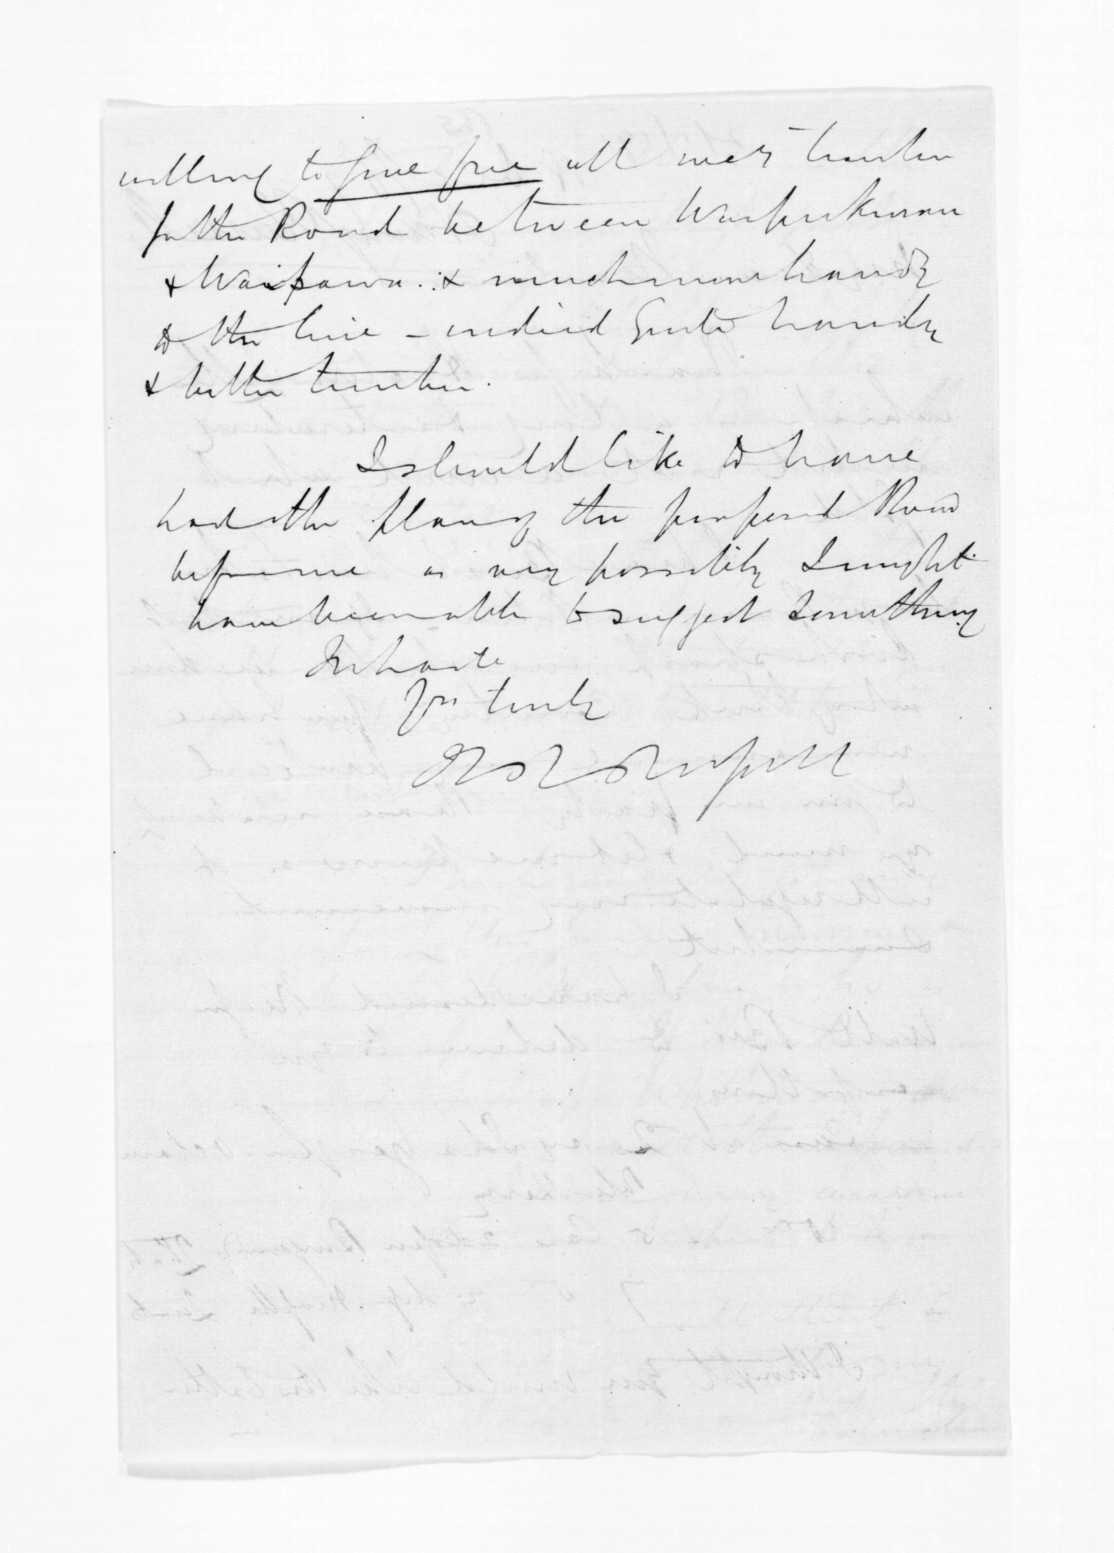 willing to give free all necy timber
for the Road between Waipukurau
& Waipawa. & much more handy
to the line - indeed quite handy
& better timber.
I should like to have
had the plan of the proposed Road
before me as very possibly I might
have been able to suggest something
In haste
Yrs truly
H R Russell